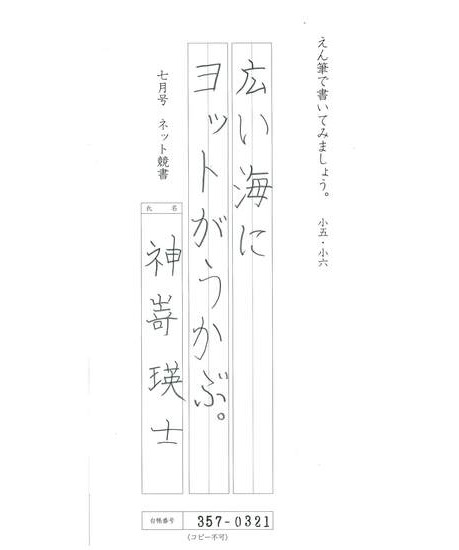 えん筆で書いてみましょう。 小五・小六
広い海に
ヨットがうかぶ。
七月号 ネット競書
氏名
神嵜瑛士
台帳番号 357-0321
(コピー不可)